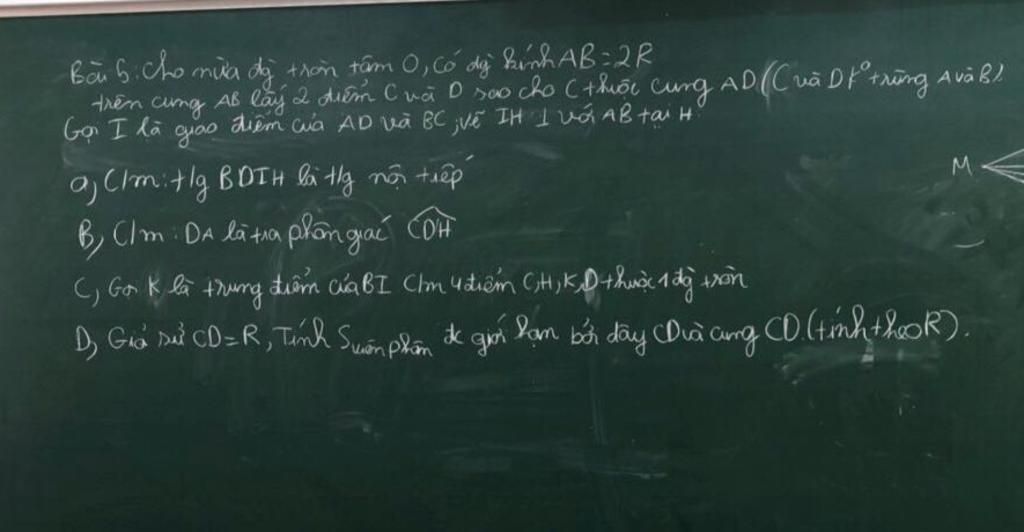 Bài 5: cho nửa đg tròn tâm O, có đg kính AB = 2R
trên cung AB lấy 2 điểm C và D sao cho C thuộc cung AD (C và D k° trùng A và B).
Gọi I là giao điểm của AD và BC, vẽ IH ⊥ với AB tại H.
a, C/m: t/g BDIH là t/g nội tiếp
B, C/m: DA là tia phân giác CDH
C, Gọi K là trung điểm của BI C/m 4 điểm C,H,K,D thuộc 1 đg tròn
D, Giả sử CD=R, Tính S viên phân đc giới hạn bởi dây CD và cung CD. (tính theo R).
M